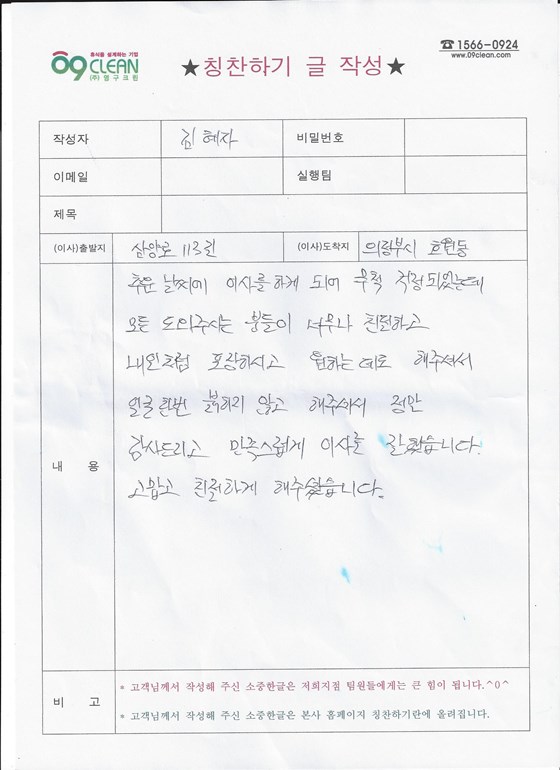 휴식을 설계하는 기업
09 CLEAN
(주)영구크린
★칭찬하기 글 작성★
☎1566-0924
www.09clean.com
작성자 김혜자 비밀번호
이메일 실행팀
제목
(이사)출발지 삼양로 113길 (이사)도착지 의정부시 호원동
내용
추운 날씨에 이사를 하게 되어 무척 걱정되었는데
모든 도와주시는 분들이 너무나 친절하고
내일처럼 포장하시고 원하는 데로 해주셔서
얼굴 한번 붉히지 않고 해주셔서 정말
감사드리고 만족스럽게 이사를 잘했습니다.
고맙고 친절하게 해주셨습니다.
비고
* 고객님께서 작성해 주신 소중한글은 저희지점 팀원들에게는 큰 힘이 됩니다.^0^
* 고객님께서 작성해 주신 소중한글은 본사 홈페이지 칭찬하기란에 올려집니다.